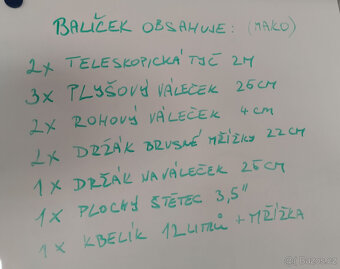 BALÍČEK OBSAHUJE: (MAKO)
2x TELESKOPICKÁ TYČ 2M
3x PLYŠOVÝ VÁLEČEK 25CM
2x ROHOVÝ VÁLEČEK 4CM
2x DRŽÁK BRUSNÉ MŘÍŽKY 22CM
1x DRŽÁK NA VÁLEČEK 25CM
1x PLOCHÝ ŠTĚTEC 3,5"
1x KBELÍK 12LITRŮ + MŘÍŽKA
Bazos.cz